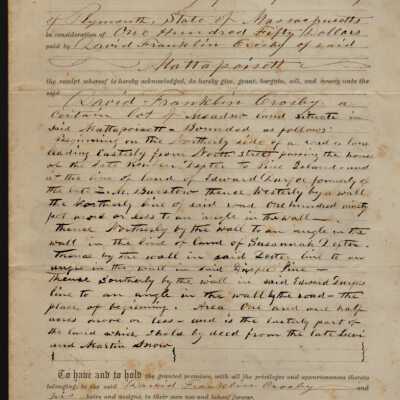 of Plymouth, State of Massachusetts
in consideration of One Hundred Fifty Dollars
paid by David Franklin Crosby of said
Mattapoisett
the receipt whereof is hereby acknowledged, do hereby give, grant, bargain, sell, and convey unto the
said
David Franklin Crosby a
Certain lot of Meadow land situate in
said Mattapoisett - Bounded as follows
Beginning on the Northerly side of a road or lane
leading Easterly from North Street passing the house
of the late Dexter to Pine Island and
at the line of land of Edward formerly of
the late Z. M. Barstow thence Westerly by a wall
the Northerly line of said road One hundred ninety
feet more or less to an angle in the wall -
thence Northerly by the wall to an angle in the
wall in the line of land of Susannah Dexter -
Thence by the wall in said Dexter line to an
angle in the wall in said line -
thence Southerly by the wall in said Edward
line to an angle in the wall by the road - the
place of beginning - Area One and one half
acres more or less - and is the Easterly part of
the land which I hold by deed from the late Levi
and Martin Snow.
To have and to hold the granted premises, with all the privileges and appurtenances thereto
belonging, to the said David Franklin Crosby and
his heirs and assigns, to their own use and behoof forever.